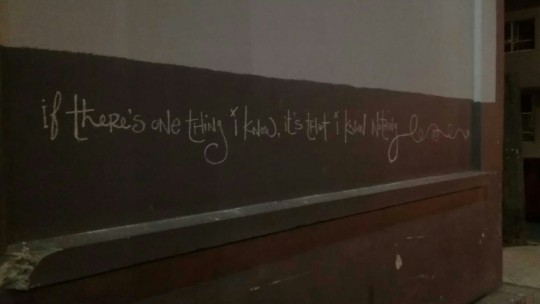 if there's one thing i know, it's that i know nothing